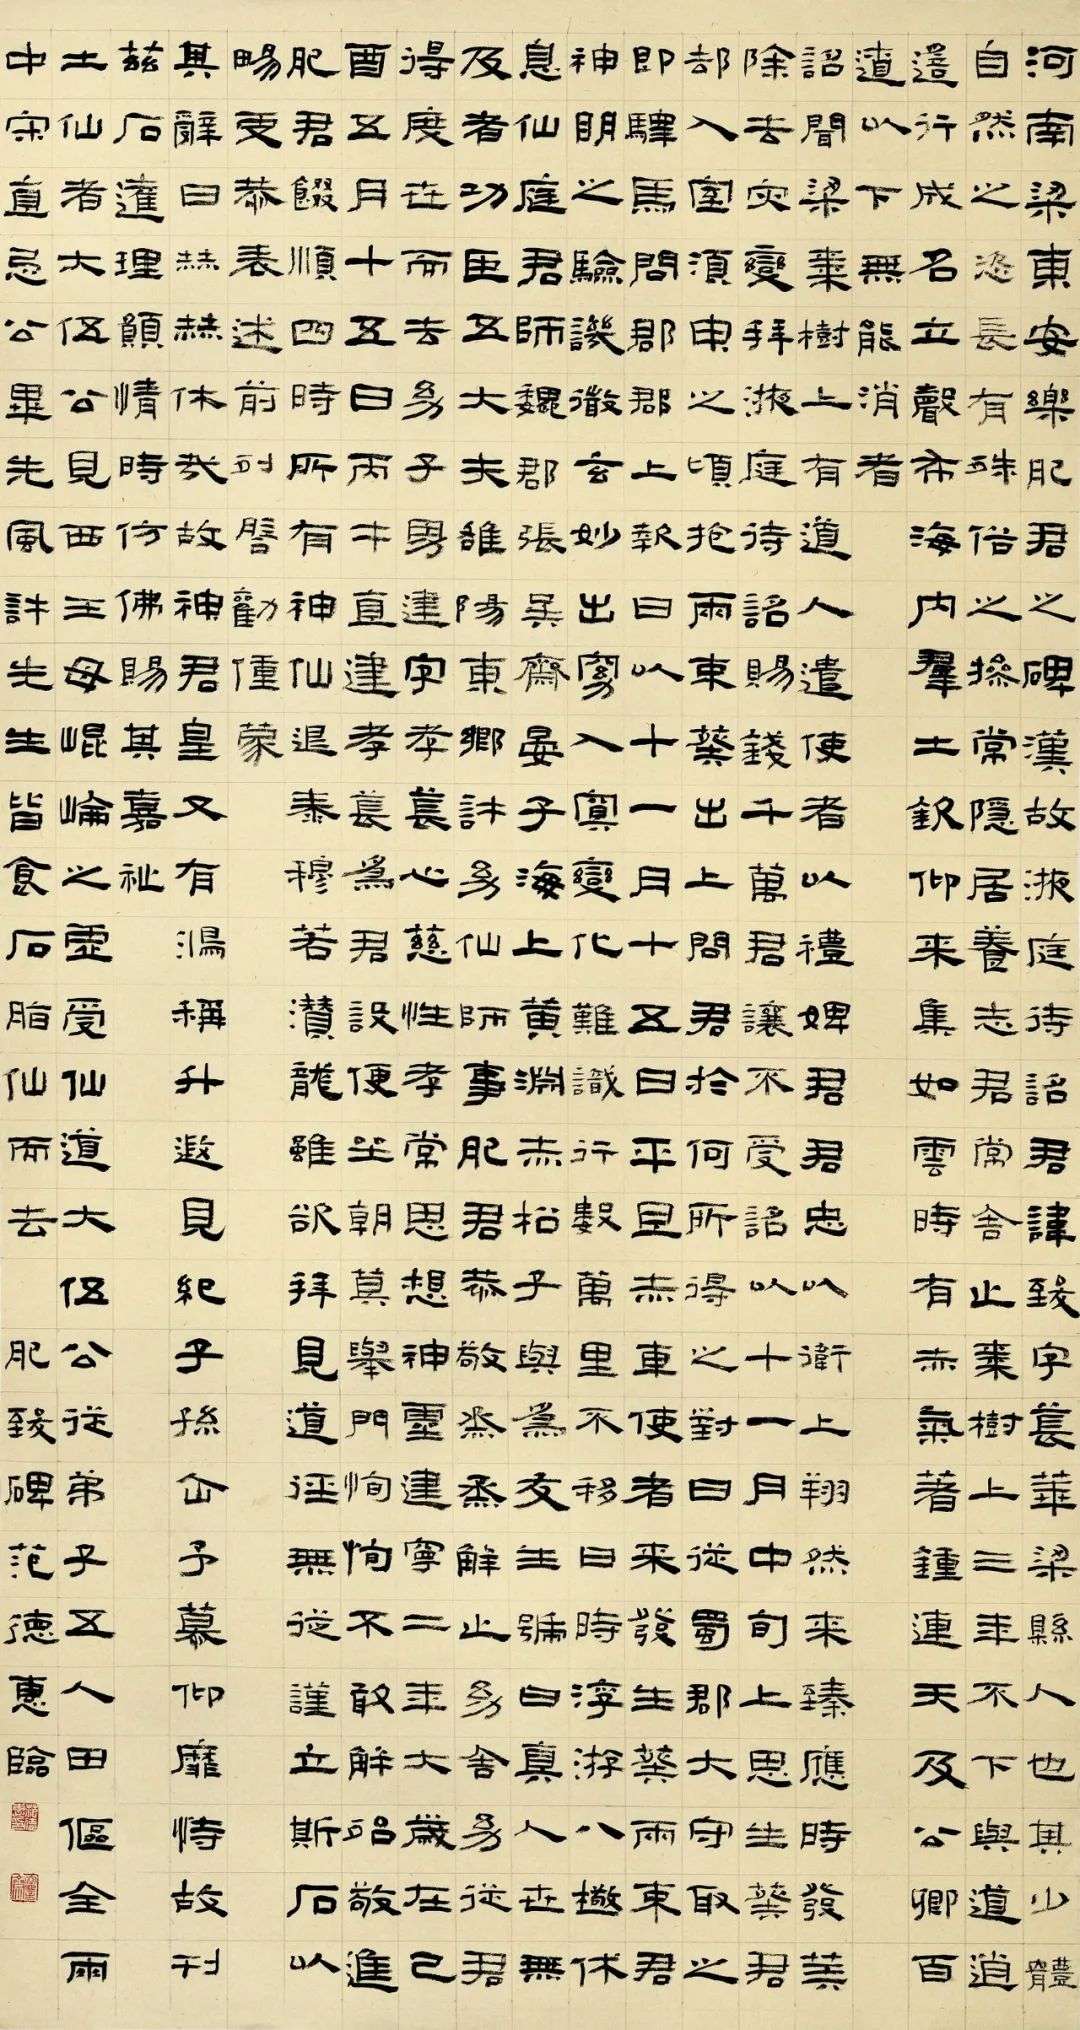 河南梁東安樂肥君之碑漢故掖庭待詔君諱致字萇華梁縣人也其少體
自然之恣長有殊俗之操常隱居養志君常舍止棗樹上三年不下與道逍
遙行成名立聲布海内羣士欽仰来集如雲時有赤氣著鍾連天及公卿百
遣以下無能消者
詔聞梁棗樹上有道人遣使者以禮娉君君忠以衛上翔然来臻應時發筭
除去灾變拜掖庭待詔賜錢千萬君讓不受詔以十一月中旬上思生葵君
却入室須臾之頃抱兩束葵出上問君於何所得之對曰從蜀郡大守取之
即驛馬問郡郡上報曰以十一月十五日平旦赤車使者来發生葵兩束君
神明之驗譏徹玄妙出窈入冥變化難識行數萬里不移日時浮游八極休
息仙庭君師魏郡張吳齋晏子海上黄淵赤松子與為友生號曰真人世無
及者功臣五大夫雒陽東鄉許幼仙師事肥君恭敬烝烝解止幼舍幼從君
得度世而去幼子男建字孝萇心慈性孝常思想神靈建寧二年大歲在己
酉五月十五日丙午直建孝萇為君設便坐朝莫舉門恂恂不敢解殆敬進
肥君餟順四時所有神仙退泰穆若瀆龍雖欲拜見道徑無從謹立斯石以
暢更恭表述前列啓勸僮蒙
其辭曰赫赫休哉故神君皇又有鴻稱升遐見紀子孫企予慕仰靡恃故刊
兹石達理願情時仿佛賜其嘉祉
土仙者大伍公見西王母崐崘之虚受仙道大伍公從弟子五人田傴全雨
中宋直忌公畢先風許先生皆食石脂仙而去 肥致碑范德惠臨